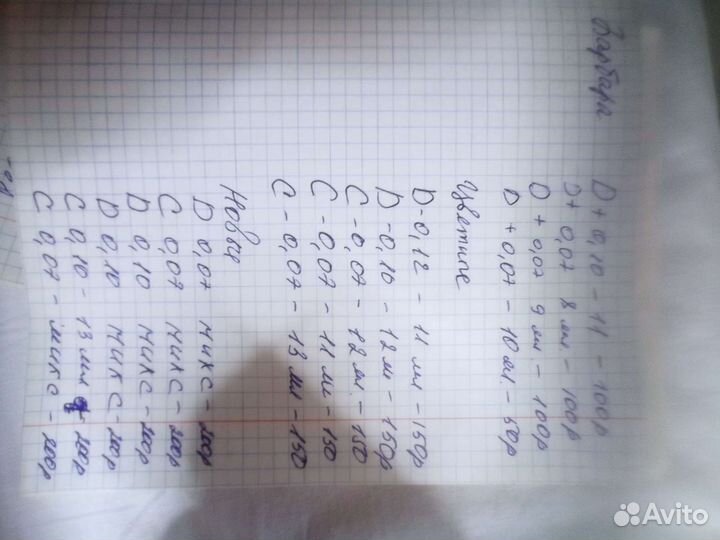 Барбара
D + 0,10 - 11 - 100р
D + 0,07 8 мм. - 100р
D + 0,07 9 мм - 100р
D + 0,07 - 10 мм. - 50р
Цветные
D - 0,12 - 11 мм - 150р
D - 0,10 - 12 м - 150р
C - 0,07 - 12 м. - 150
C - 0,07 - 11 мм - 150
C - 0,07 - 13 мм - 150
Новые
D 0,07 микс - 200р
C 0,07 микс - 200р
D 0,10 микс - 200р
D 0,10 микс - 200р
C 0,10 - 13 мм - 200р
C 0,07 - микс - 200р
Avito